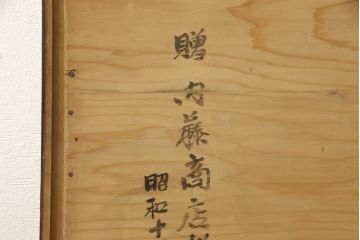 贈 内藤商店
昭和十